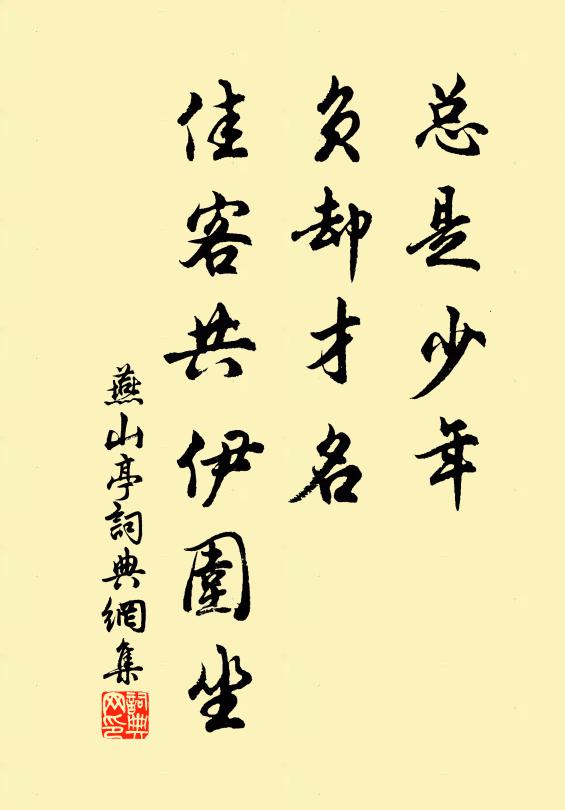 总是少年
负却才名
佳客共伊圍坐
燕山亭詞典網集
詞典
网印